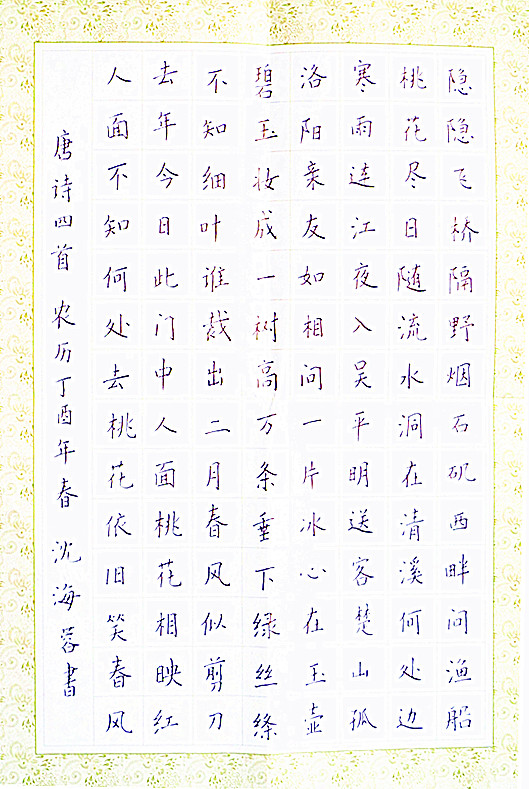 隐隐飞桥隔野烟石矶西畔问渔船
桃花尽日随流水洞在清溪何处边
寒雨连江夜入吴平明送客楚山孤
洛阳亲友如相问一片冰心在玉壶
碧玉妆成一树高万条垂下绿丝绦
不知细叶谁裁出二月春风似剪刀
去年今日此门中人面桃花相映红
人面不知何处去桃花依旧笑春风
唐诗四首 农历丁酉年春 沈海蓉书